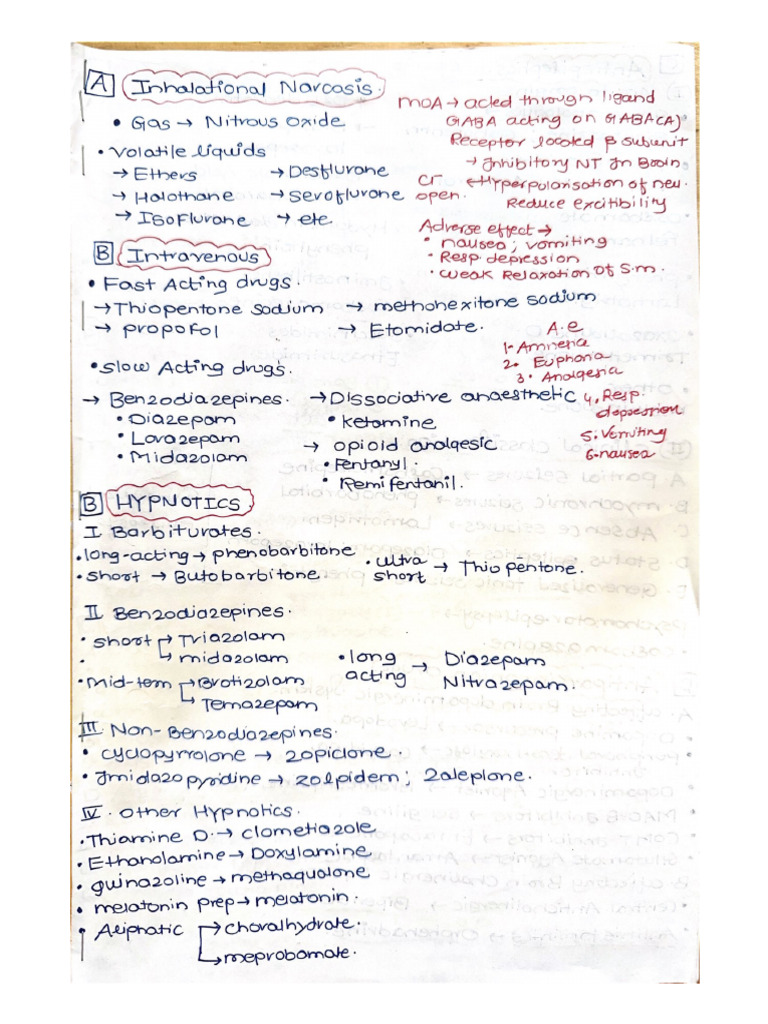 A Inhalational Narcosis.
• Gas → Nitrous Oxide
• Volatile liquids
→ Ethers → Desflurane
→ Halothane → Sevoflurane
→ Isoflurane → etc.
MOA → acted through ligand
GABA acting on GABA(A)
Receptor located β subunit
→ Inhibitory NT In Brain
Cl- open. ← Hyperpolarisation of neu.
Reduce excitibility
Adverse effect →
• nausea, vomiting
• Resp depression
• weak Relaxation of S.m.
B Intravenous
• Fast Acting drugs.
→ Thiopentone sodium → methohexitone sodium
→ propofol → Etomidate.
A.e
1. Amnesia
2. Euphoria
3. Analgesia
4. Resp. depression
5. Vomiting
6. nausea
• Slow Acting drugs.
→ Benzodiazepines. → Dissociative anaesthetic
• Diazepam • Ketamine
• Lorazepam → opioid analgesic
• Midazolam • Fentanyl.
• Remifentanil.
B HYPNOTICS.
I Barbiturates.
• long-acting → phenobarbitone
• short → Butobarbitone • ultra short → Thiopentone.
II Benzodiazepines.
• short → Triazolam
→ midazolam • long acting → Diazepam
Nitrazepam.
• Mid-term → Brotizolam
→ Temazepam
III Non-Benzodiazepines.
• cyclopyrrolone → zopiclone.
• Imidazo pyridine → zolpidem; zaleplone.
IV. Other Hypnotics.
• Thiamine D. → clometiazole
• Ethanolamine → Doxylamine
• quinazoline → methaqualone
• melatonin prep → melatonin.
• Aliphatic → choralhydrate.
→ meprobamate.